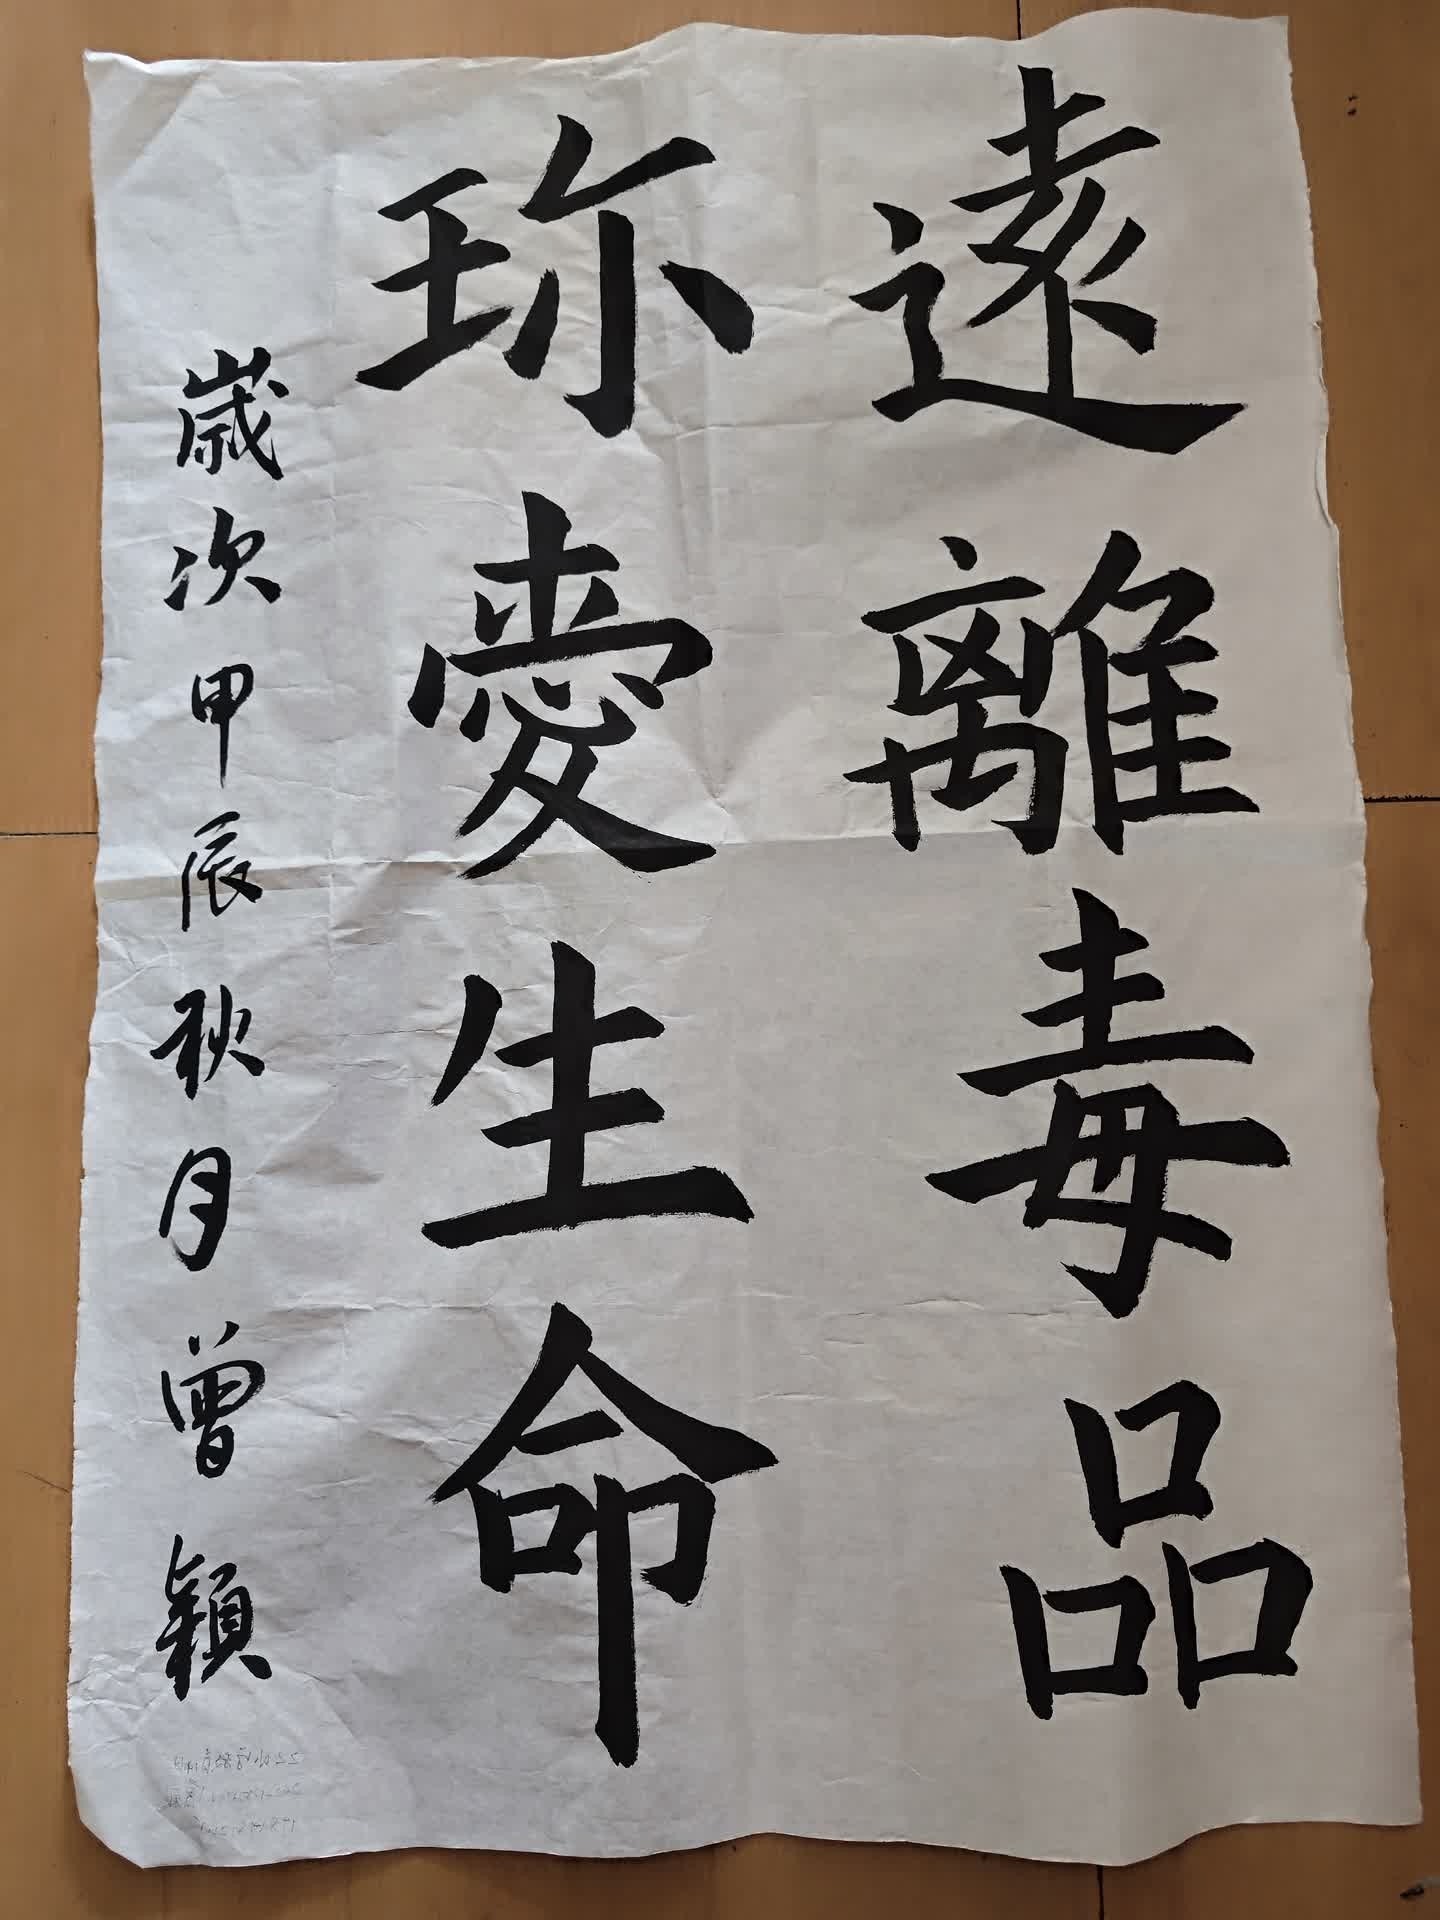 遠離毒品
珎愛生命
歲次甲辰秋月曾穎